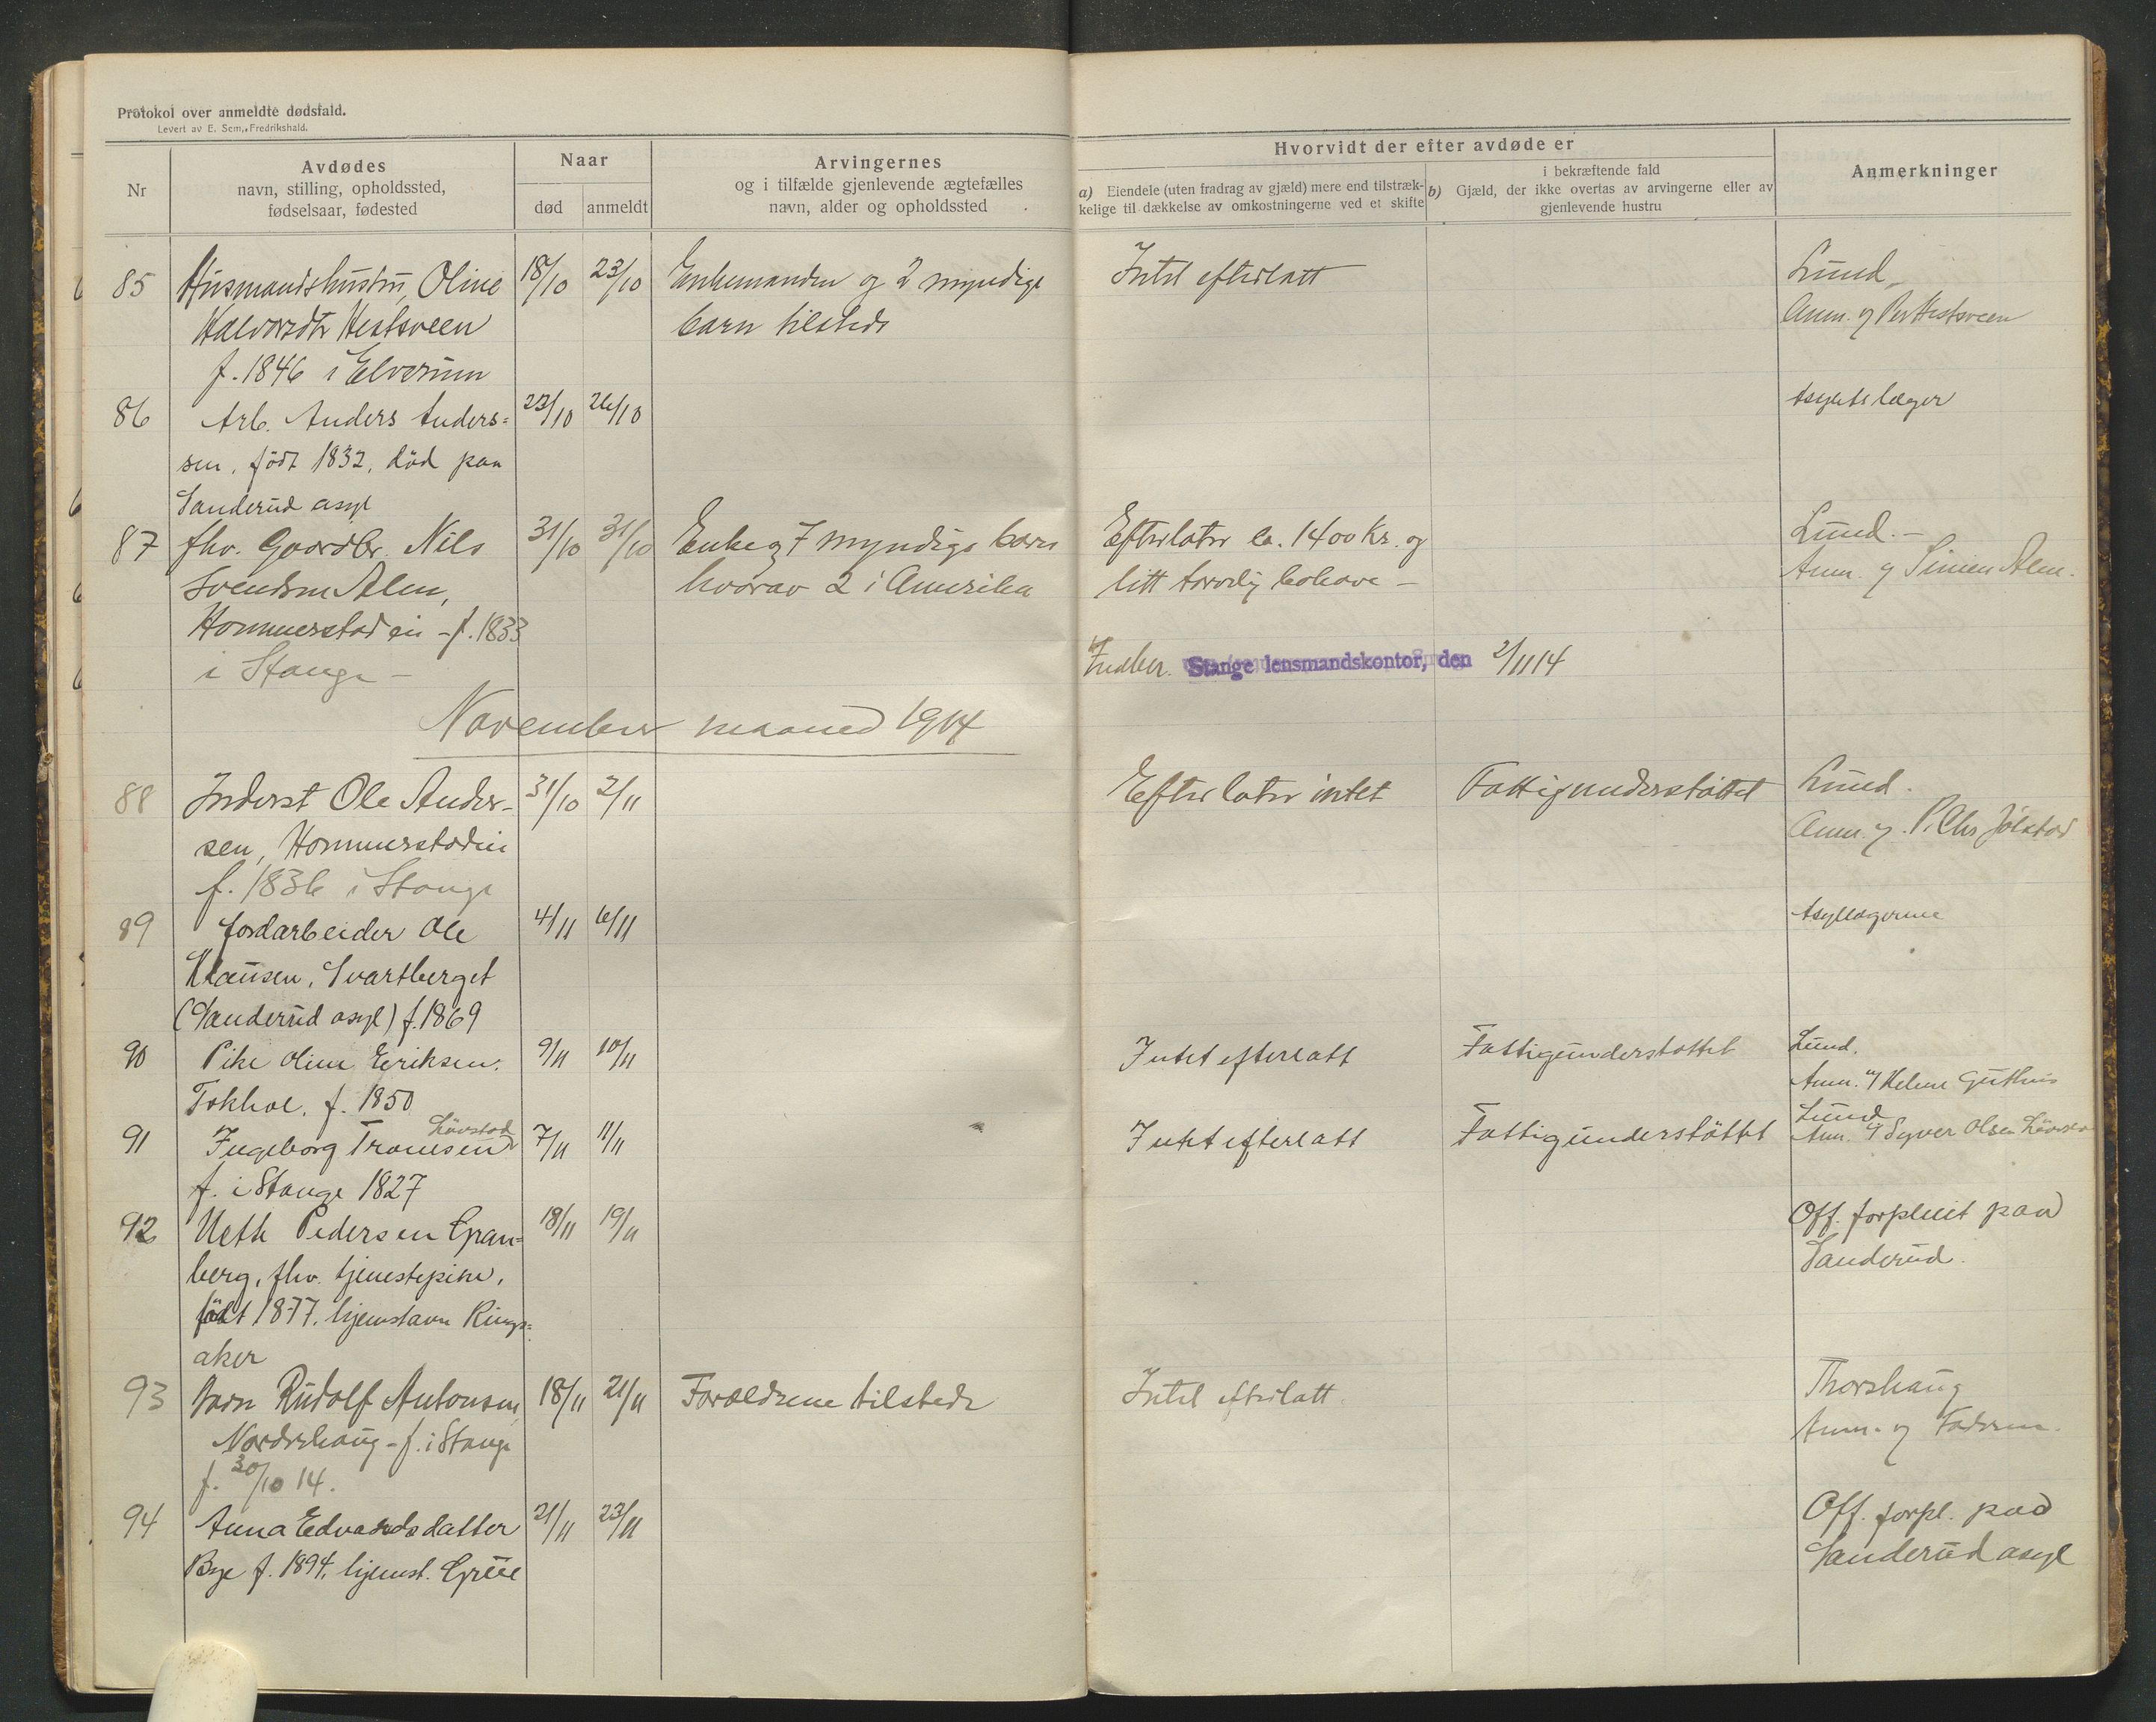 Protokol over anmeldte dødsfald.
Levert av E. Sem, Fredrikshald.
Nr
Avdødes
navn, stilling, opholdssted,
fødselsaar, fødested
Naar
død
anmeldt
Arvingernes
og i tilfælde gjenlevende ægtefælles
navn, alder og opholdssted
Hvorvidt der efter avdøde er
a) Eiendele (uten fradrag av gjæld) mere end tilstræk-
kelige til dækkelse av omkostningerne ved et skifte
i bekræftende fald
b) Gjæld, der ikke overtas av arvingerne eller av
gjenlevende hustru
Anmerkninger
85 Husmandshustru Oline 18/10 23/10 Enkemanden og 2 myndige Intet efterlatt Lund
Halvorsdtr Hestsveen barn tilstede Anm. af Per Hestsveen
f. 1846 i Elverum
86 Arb. Anders Anders= 23/10 26/10 Asylets læger
sen, født 1832, død paa
Sanderud asyl
87 fhv. Gaardbr. Nils 31/10 31/10 Enke og 7 myndige barn Efterlater ca. 1400 Kr. og Lund. -
Svendsen Alm, hvorav 2 i Amerika litt tarvelig bohave - Anm. af Simen Alm.
Hommerstad ei - f. 1833
i Stange -
Indber. Stange lensmandskontor, den 2/11 14
November maaned 1914
88 Inderst Ole Ander- 31/10 2/11 Efterlater intet Fattigunderstöttet Lund.
sen, Hommerstadei Anm. af P. Chr Jølstad
f. 1836 i Stange
89 Jordarbeider Ole 4/11 6/11 Asyllægerne
Klausen, Svartberget
(Sanderud asyl) f. 1869
90 Pike Oline Eriksen. 9/11 10/11 Intet efterlatt Fattigunderstøttet Lund.
Tokhol, f. 1850 Anm. af Helene Guthus
91 Ingeborg Tronesen Lövstad 7/11 11/11 Intet efterlatt Fattigunderstöttet Lund
f. i Stange 1827 Anm. af Syver Olsen Lövstad
92 Neth Pedersen Gran= 18/11 19/11 Off. forpleiet paa
berg, fhv. tjenestepike, Sanderud.
født 1877. hjemstavn Rings=
aker
93 Barn Rudolf Antonsen 18/11 21/11 Forældrene tilstede Intet efterlatt. Thorshaug
Nordrehaug - f. i Stange Anm. af Faderen.
f. 30/10 14.
94 Anna Edvardsdatter 21/11 23/11 Off. forpl. paa
Bye f. 1894. hjemst. Grue Sanderud asyl